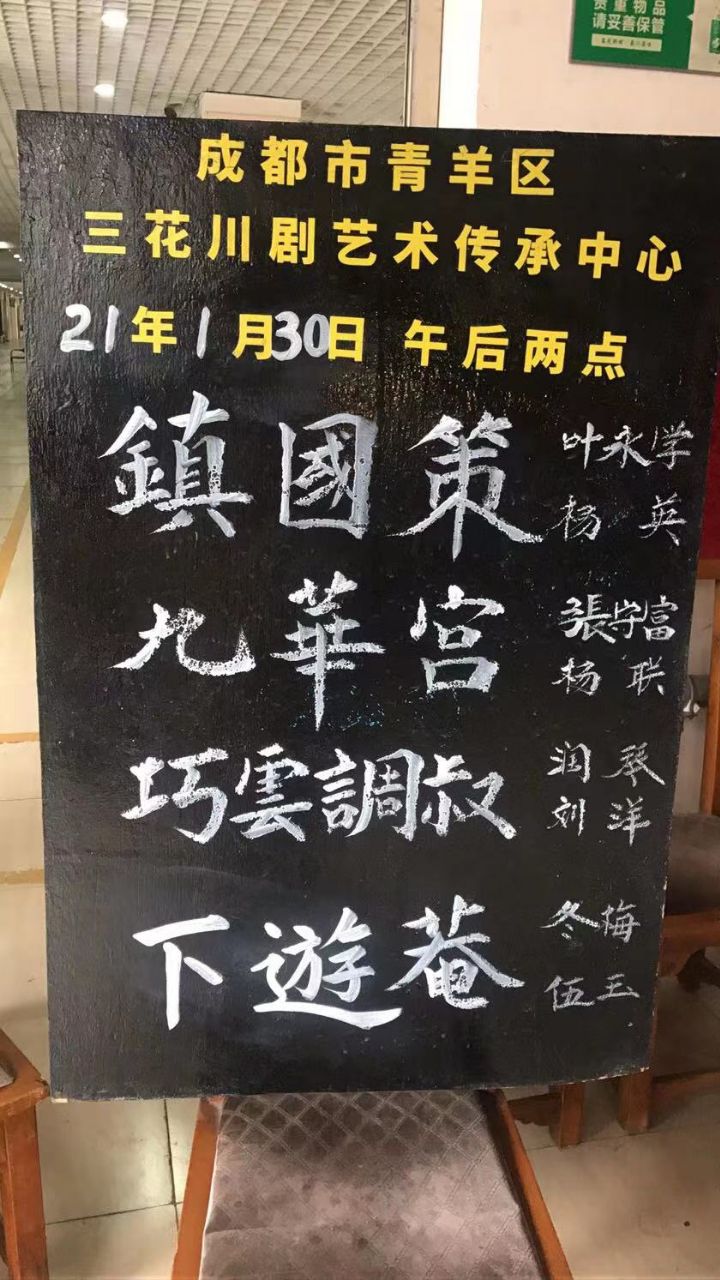 贵重物品
请妥善保管
成都市青羊区
三花川剧艺术传承中心
21年1月30日 午后两点
鎮國策 叶永学 杨英
九華宫 張宇富 杨联
巧雲調叔 润琴 刘洋
下遊菴 冬梅 伍王